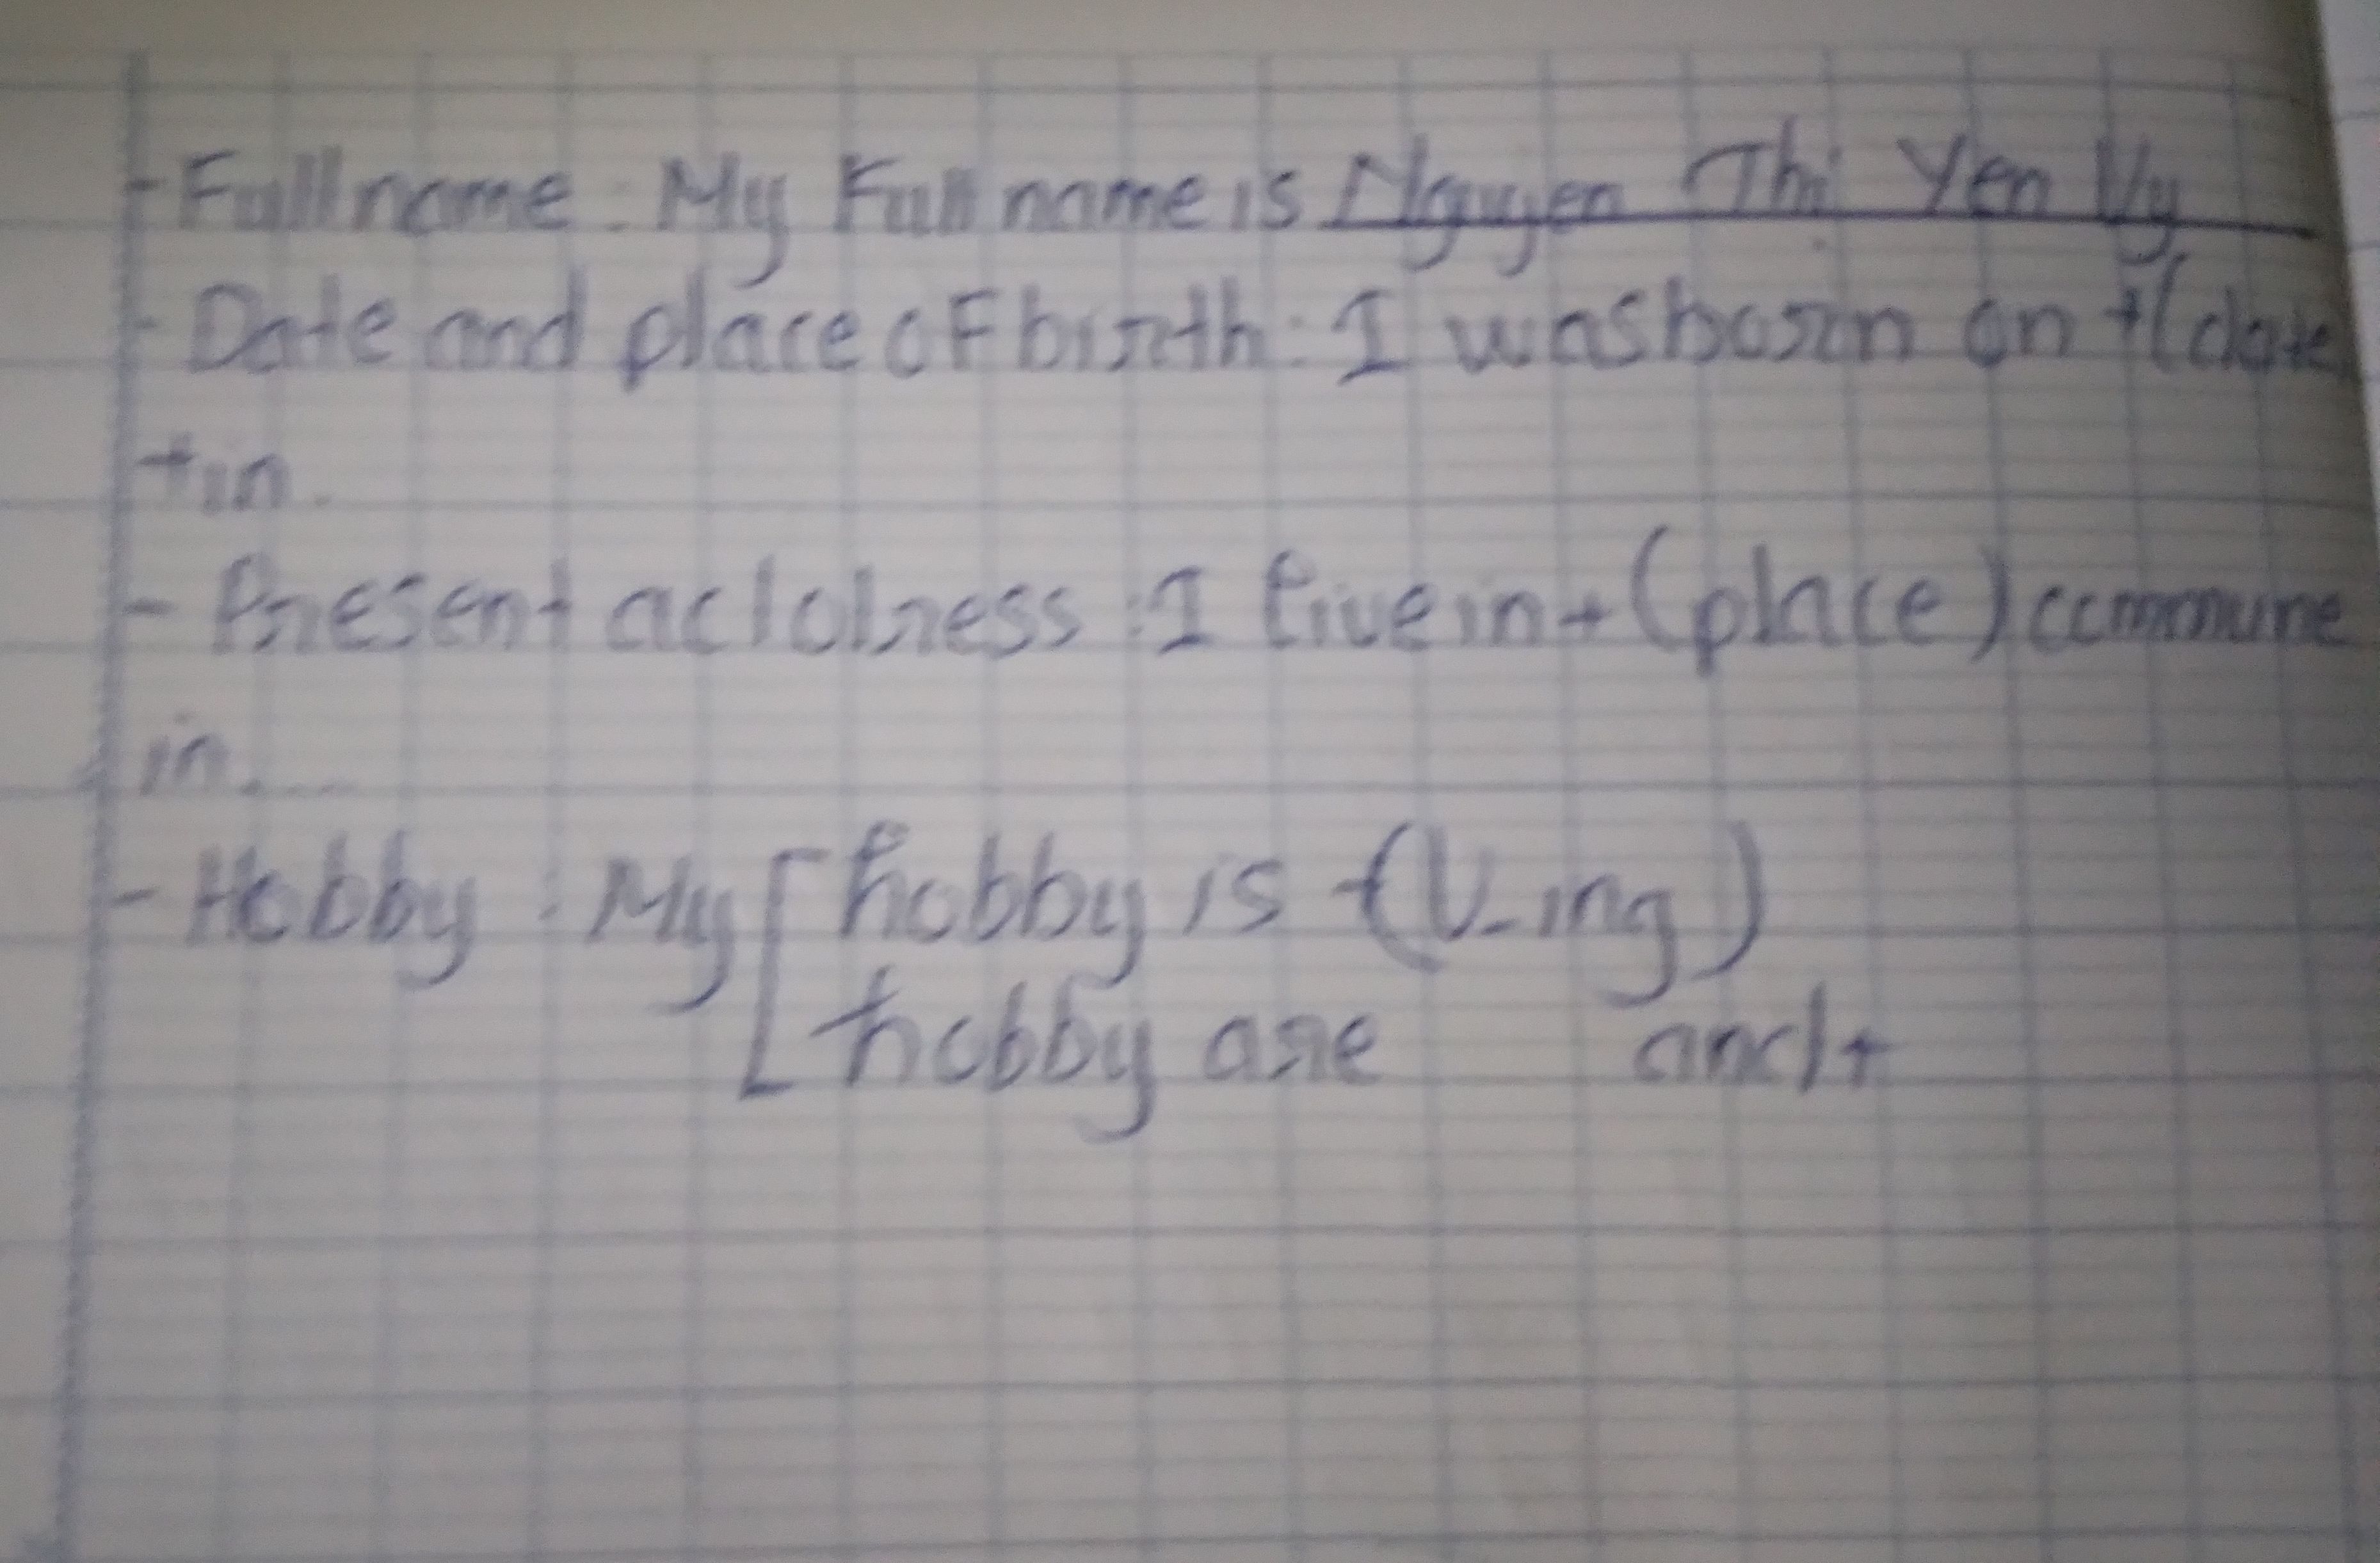 - Full name : My Full name is Nguyen Thi Yen Vy
- Date and place of birth : I was born on + (date)
+ in.
- Present address : I live in + (place) commune
in....
- Hobby : My [ hobby is + (V-ing)
hobby are and +